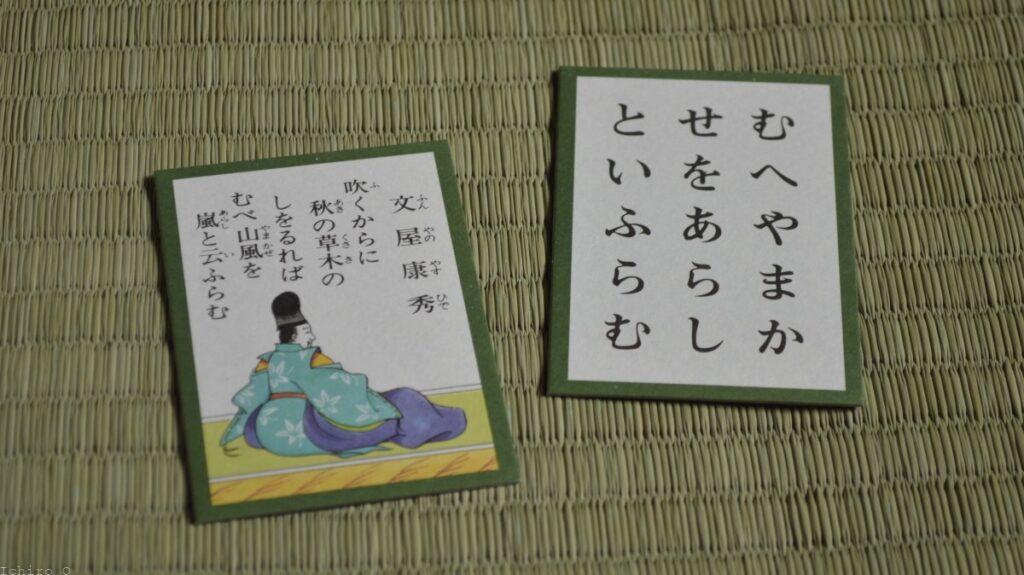 文屋康秀
吹くからに
秋の草木の
しをるれば
むべ山風を
嵐と云ふらむ
むへやまか
せをあらし
といふらむ
Ichiro O